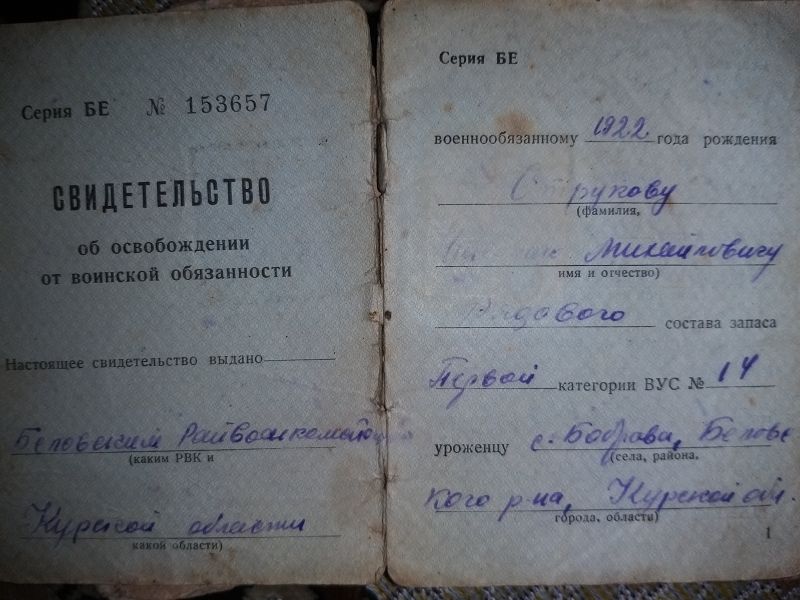 Серия БЕ № 153657
СВИДЕТЕЛЬСТВО
об освобождении
от воинской обязанности
Настоящее свидетельство выдано
Беловским Райвоенкоматом
(каким РВК и
Курской области
какой области)
Серия БЕ
военнообязанному 1922 года рождения
Струкову
(фамилия,
Михайловичу
имя и отчество)
Рядового состава запаса
Первой категории ВУС № 14
уроженцу с. Боброва, Беловс
(села, района,
кого р-на, Курской обл.
города, области)
1